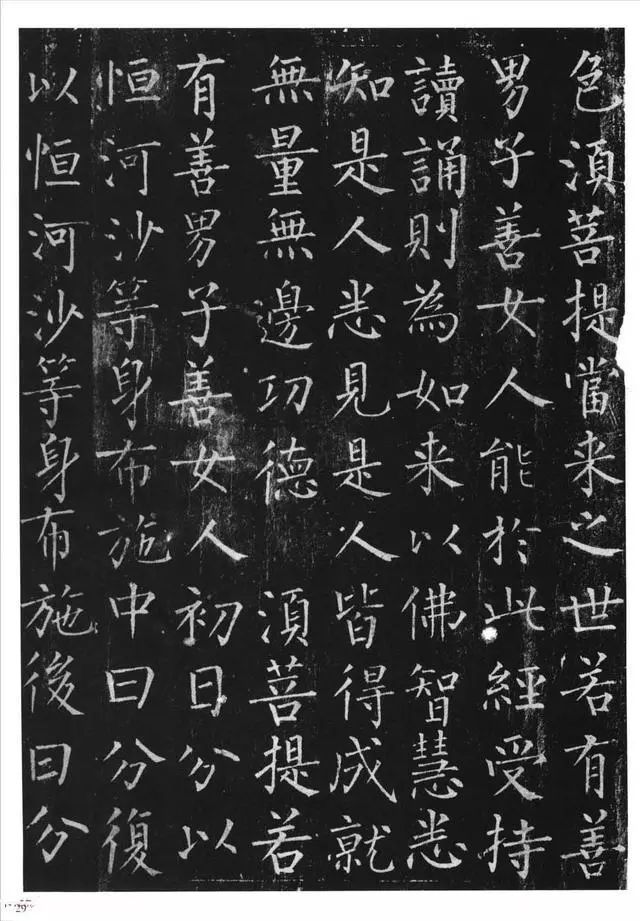 色湏菩提當来之世若有善
男子善女人能於此經受持
讀誦則為如来以佛智慧悉
知是人悉見是人皆得成就
無量無邊功德 湏菩提若
有善男子善女人初日分以
恒河沙等身布施中日分復
以恒河沙等身布施後日分
29